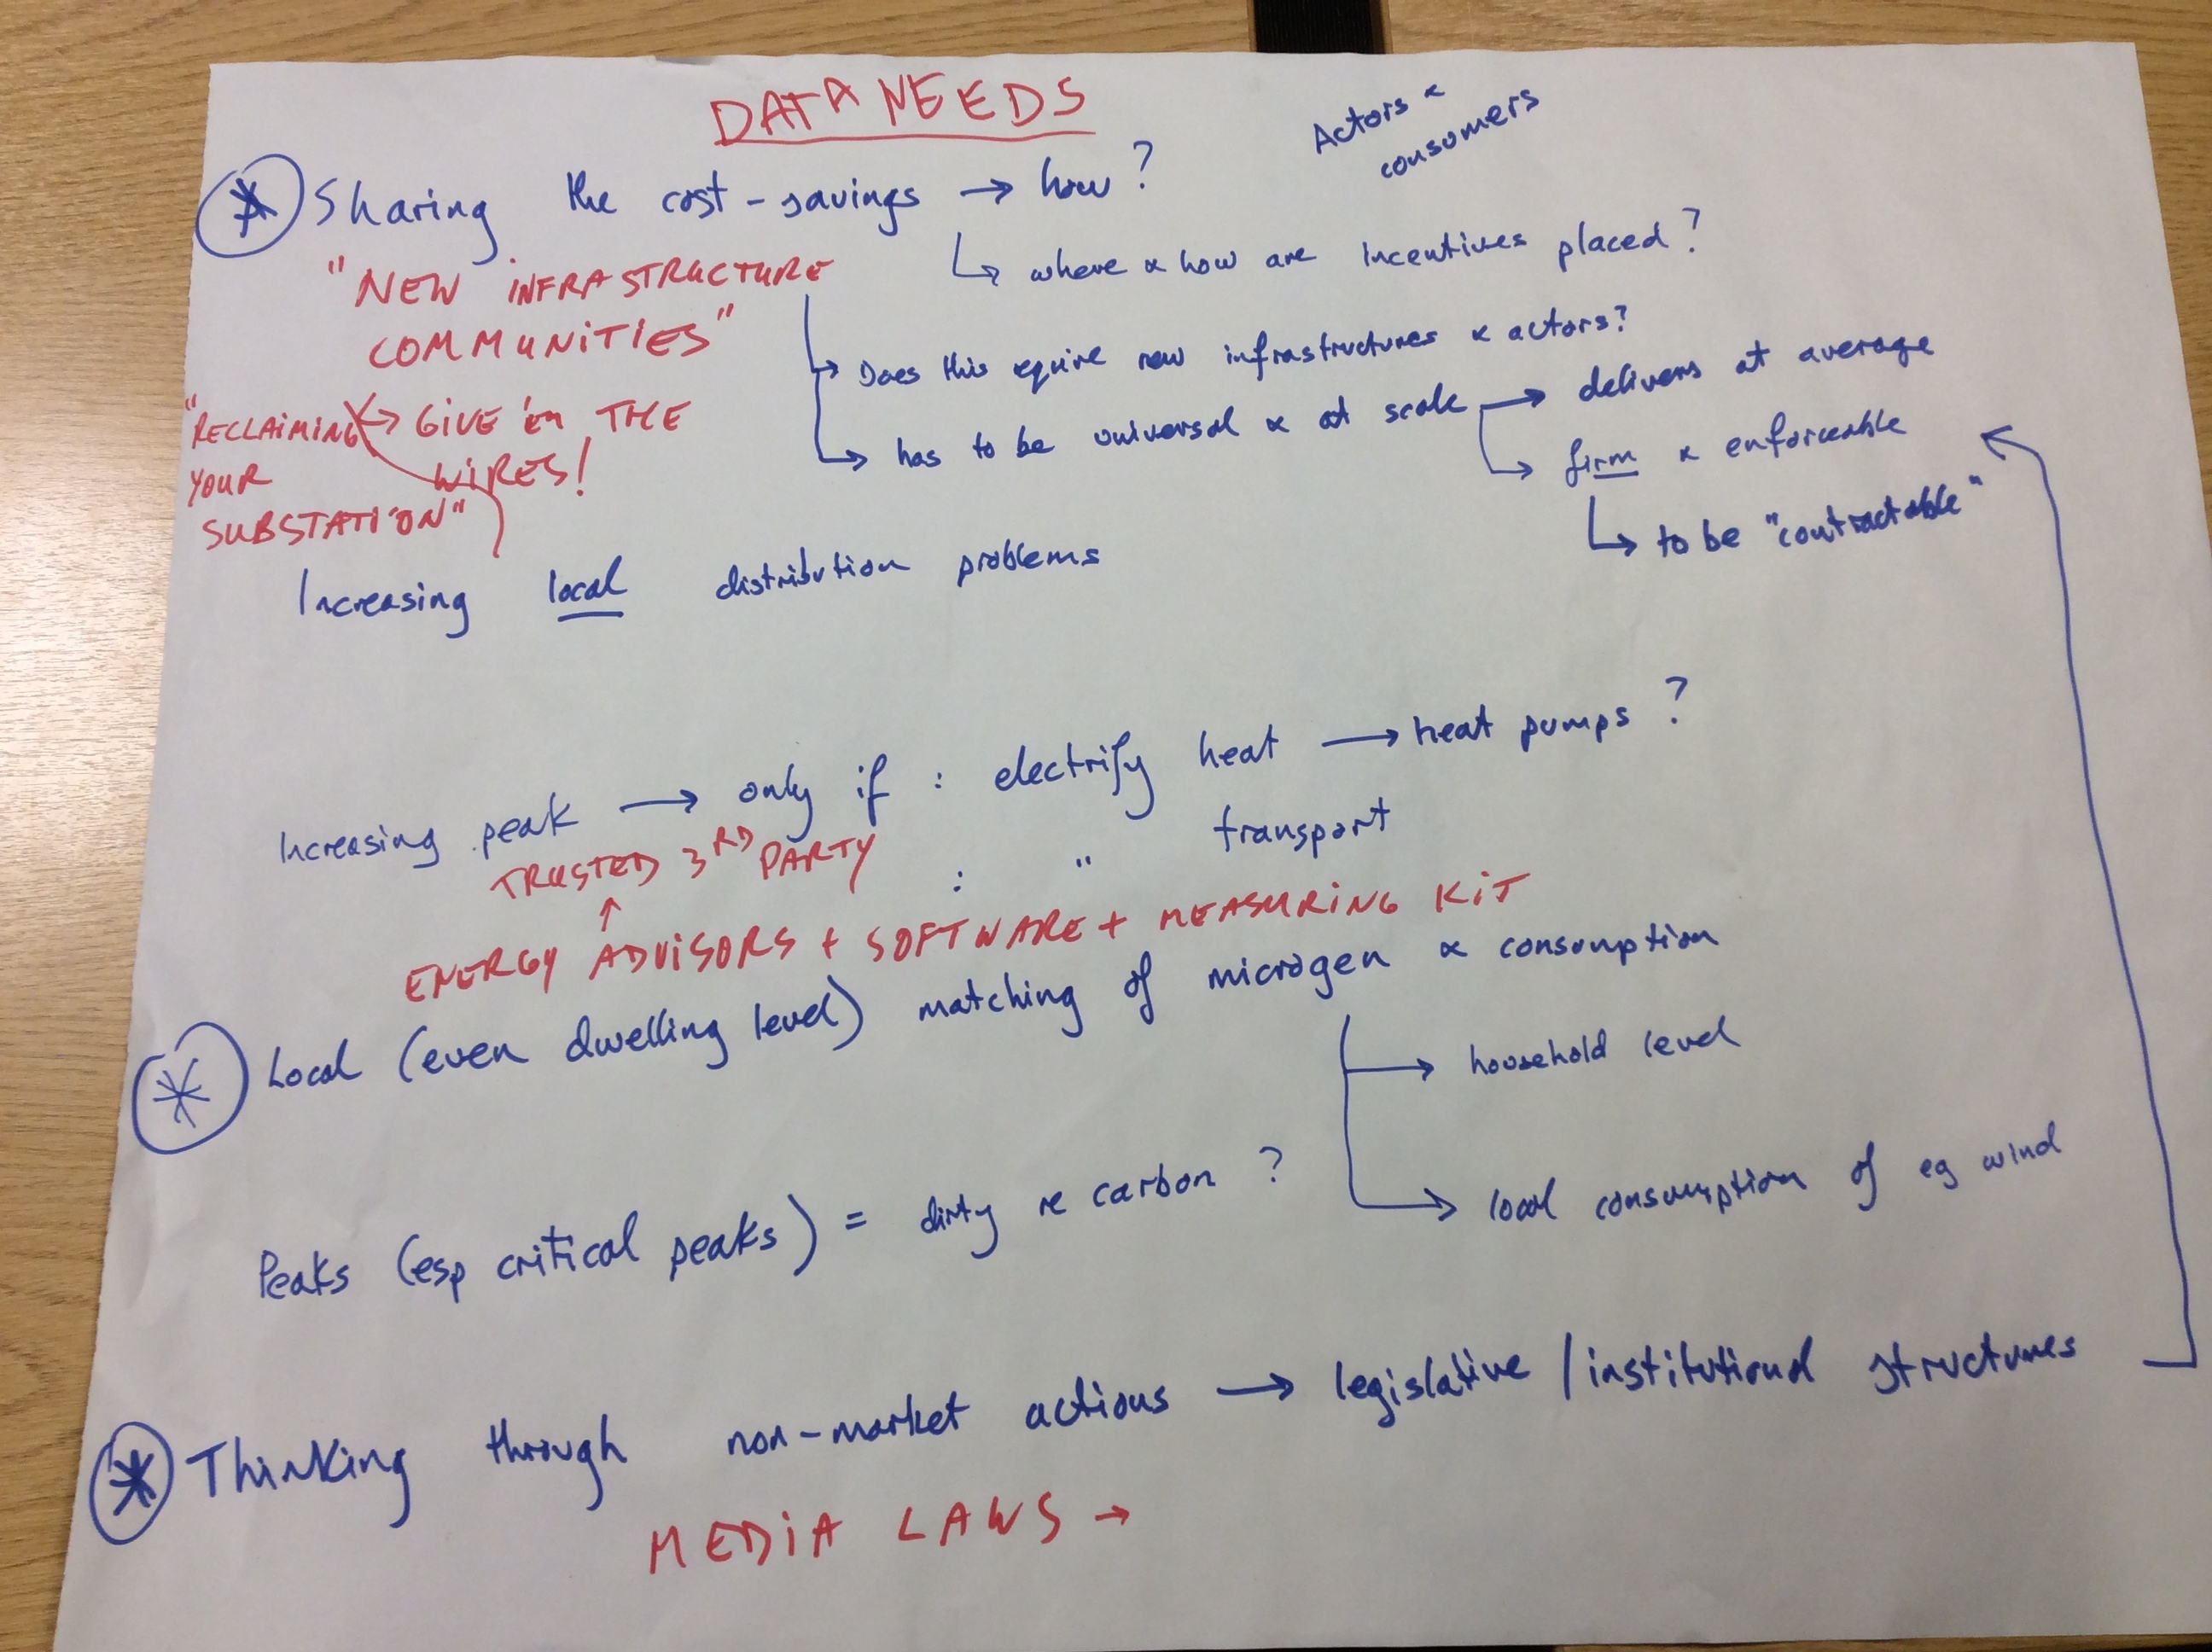 DATA NEEDS
Actors &
consumers
Sharing the cost-savings → how?
↳ where & how are incentives placed?
"NEW INFRASTRUCTURE
COMMUNITIES"
↳ Does this equire new infrastructures & actors?
↳ has to be universal & at scale → delivers at average
↳ firm & enforceable
↳ to be "contractable"
"RECLAIMING
YOUR
SUBSTATION"
→ GIVE 'em THE
WIRES!
Increasing local distribution problems
Increasing peak → only if : electrify heat → heat pumps ?
: " transport
TRUSTED 3RD PARTY
↑
ENERGY ADVISORS + SOFTWARE + MEASURING KIT
* Local (even dwelling level) matching of microgen & consumption
→ household level
→ local consumption of eg wind
Peaks (esp critical peaks) = dirty re carbon ?
* Thinking through non-market actions → legislative / institutional structures
MEDIA LAWS →